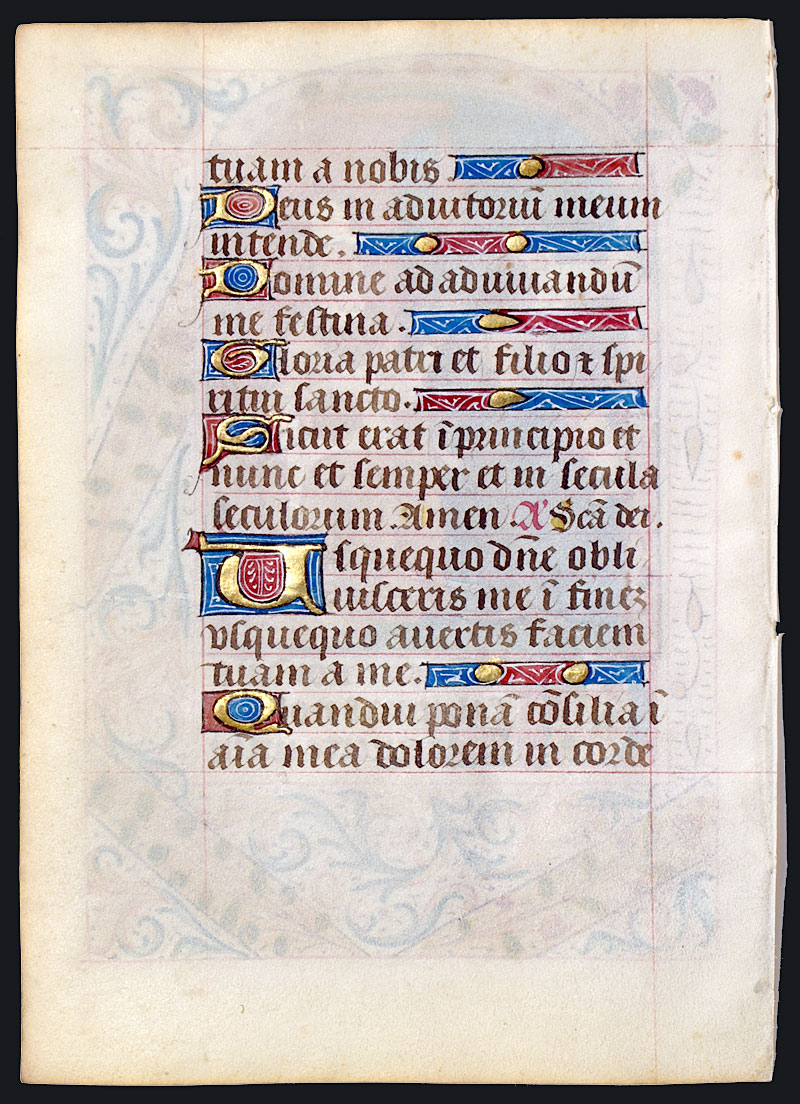 tuam a nobis
Deus in adiutoriū meum
intende.
Domine ad adiuuandū
me festina.
Gloria patri et filio ⁊ spi
ritui sancto.
Sicut erat ī principio et
nunc et semper et in secula
seculorum. Amen. A' Scā dei.
Usquequo dn̄e obli
uisceris me ī finez
vsquequo auertis faciem
tuam a me.
Quandiu ponā cōsilia ī
aīa mea dolorem in corde